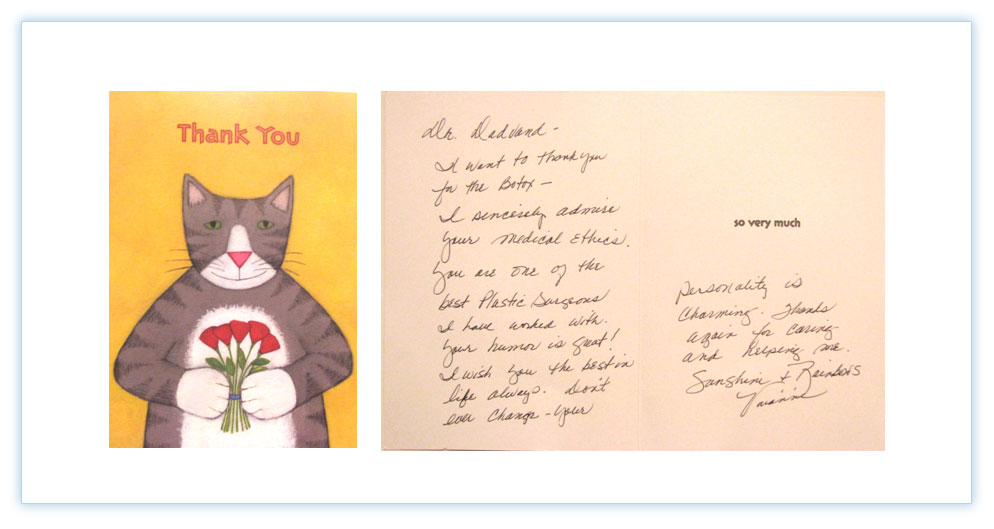 Thank You
Dr. Dadvand -
I want to thank you
for the Botox -
I sincerely admire
your medical Ethics.
You are one of the
best Plastic Surgeons
I have worked with.
Your humor is great!
I wish you the best in
life always. Don't
ever change - your
so very much
personality is
Charming. Thanks
again for caring
and helping me.
Sunshine & Rainbows